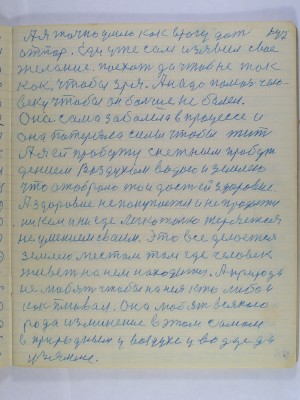 А я точно дело как врачу дат
Еду уже сам изъявил свое
желание. поехат да чтоб не так
как, чтобы зря. А надо помоч чело-
веку чтобы он больше не болел.
Она сама заболела в процессе и
она потеряла силы чтобы жит
А я ей пробужу снежным пробуж
дением Воздухом водою и землею
что отобрало то и даст ей здоровие.
А здоровие не покупается и не продается
никем и нигде легко только теряется
неумением своим. Это все делается
землею местом там где человек
живет на нем находится. А природа
не любит чтобы на ней кто либо и
как плевал. Она любит всякого
рода изменение в этом самом
в природном у воздухе у воде да
у земле.